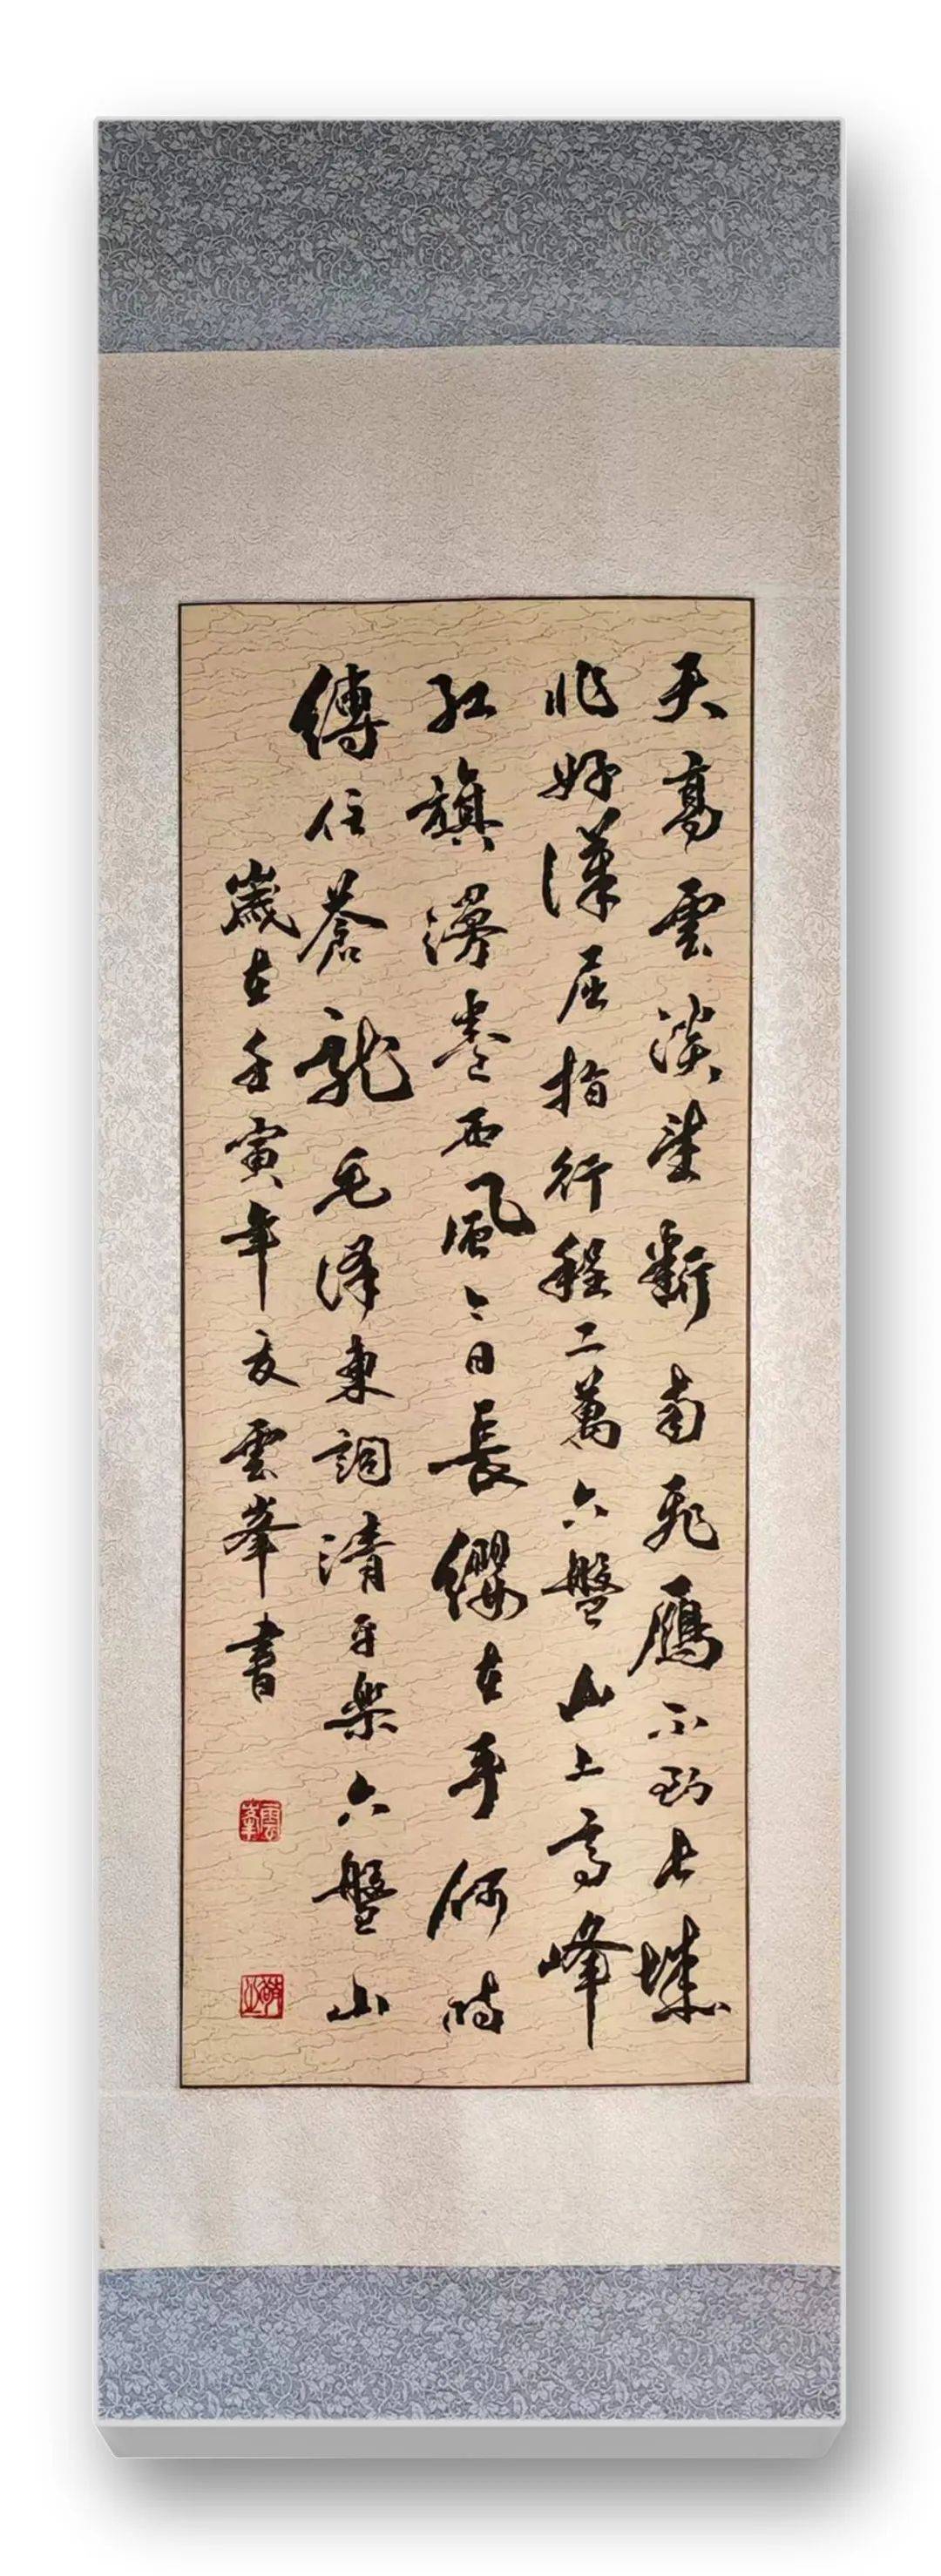 天高雲淡望斷南飛鴈不到長城
非好漢屈指行程二萬六盤山上高峰
紅旗漫卷西風今日長纓在手何時
縛住蒼龍毛澤東詞清平樂六盤山
歲在壬寅年夏雲峯書
雲峯